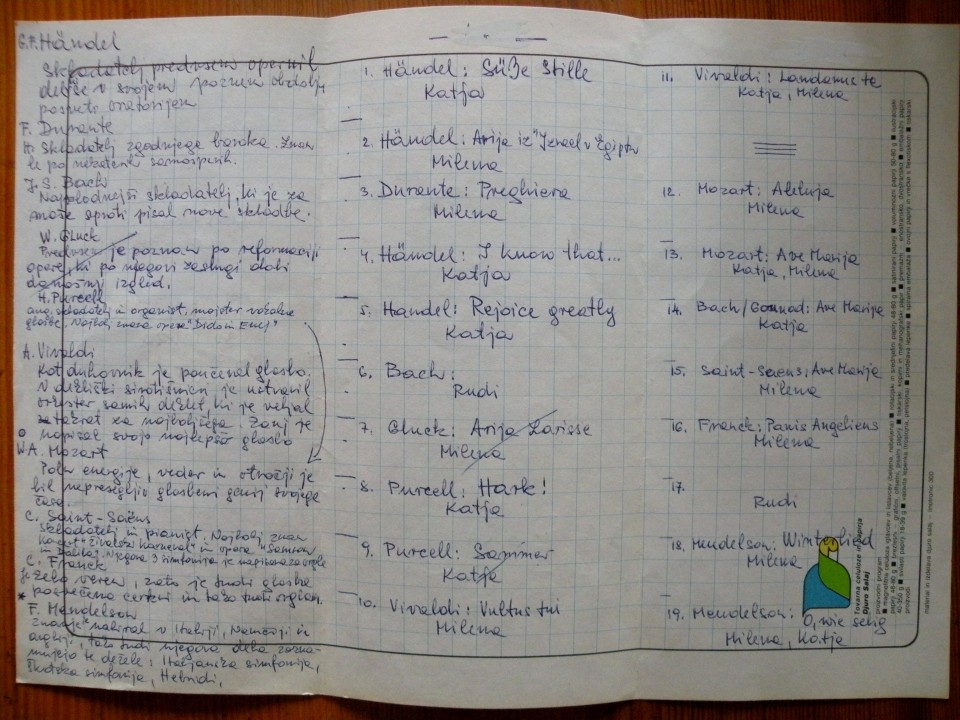 G.F. Händel
Skladatelj predvsem opernih
del še v svojem poznem obdobju
posveti oratorijem
F. Durante
Skladatelj zgodnjega baroka. Znan
le po nekaterih samospevih.
J.S. Bach
Najplodnejši skladatelj, ki je za
mašo sproti pisal nove skladbe.
W. Gluck
Predvsem je poznan po reformaciji
opere, ki po njegovi zaslugi dobi
današnji izgled.
H. Purcell
ang. skladatelj in organist, mojster vokalne
glasbe. Najbolj znana opera "Dido in Enej"
A. Vivaldi
Kot duhovnik je poučeval glasbo.
V dekliški sirotišnici je ustvaril
orkester samih deklet, ki je veljal
takrat za najboljšega. Zanj je
napisal svojo najlepšo glasbo
W.A. Mozart
Poln energije, vedar in otročji je
bil neprekosljiv glasbeni genij svojega
časa.
C. Saint-Saëns
Skladatelj in pianist. Najbolj znan
"Živalski karneval" in opera "Samson
in Dalila". Njegova 3. simfonija je napisana za orgle
C. Franck
je zelo veren, zato je tudi glasba
posvečena cerkvi in tako tudi orglam.
F. Mendelson
znanje nabiral v Italiji, Nemčiji in
angliji, tako tudi njegova dela zazna-
mujejo te dežele: Italijanska simfonija,
Škotska simfonija, Hebridi,
1. Händel: Süße Stille
Katja
2. Händel: Arija iz "Izrael v Egiptu
Milena
3. Durante: Preghiera
Milena
4. Händel: I know that...
Katja
5. Handel: Rejoice greatly
Katja
6. Bach:
Rudi
7. Gluck: Arija Larisse
Milena
8. Purcell: Hark!
Katja
9. Purcell: Sommer
Katja
10. Vivaldi: Vultus tui
Milena
11. Vivaldi: Laudamus te
Katja, Milena
12. Mozart: Aleluja
Milena
13. Mozart: Ave Marija
Katja, Milena
14. Bach/Gounod: Ave Marija
Katja
15. Saint-Saens: Ave Marija
Milena
16. Franck: Panis Angelicus
Milena
17.
Rudi
18. Mendelson: Winterlied
Milena
19. Mendelson: O, wie selig
Milena, Katja
Tovarna celuloze in papirja
Djuro Salaj
proizvodni program